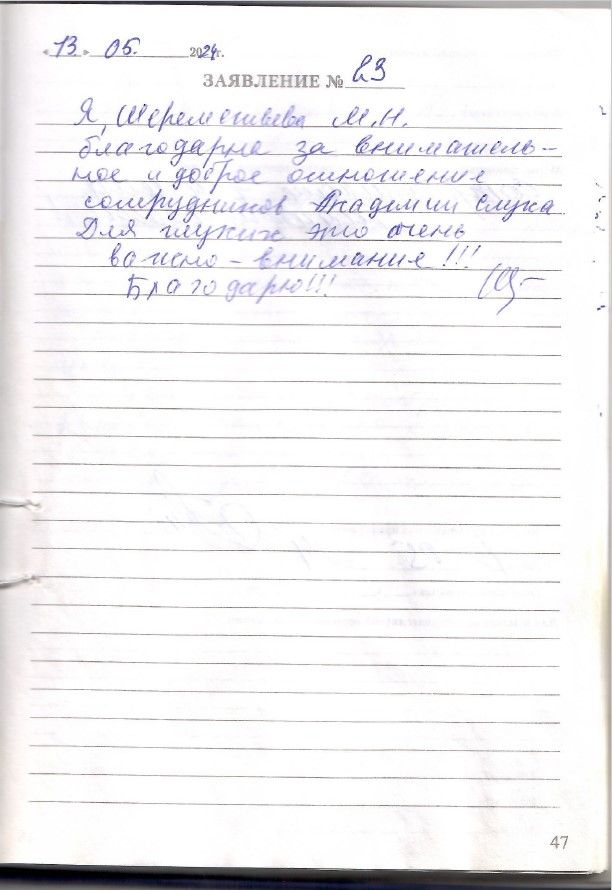 «13» 05. 2024г.
ЗАЯВЛЕНИЕ № 23
Я, Шереметьева М.Н.
благодарна за вниматель-
ное и доброе отношение
сотрудников Академии Слуха
Для глухих это очень
важно - внимание!!!
Благодарю!!!
47